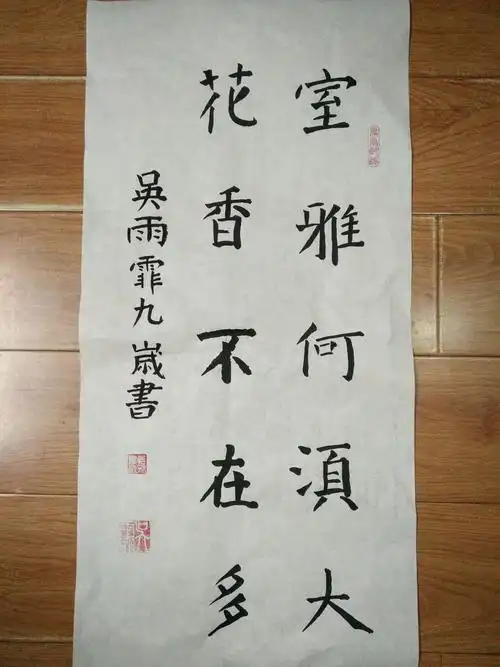 室雅何湏大
花香不在多
吳雨霏九嵗書